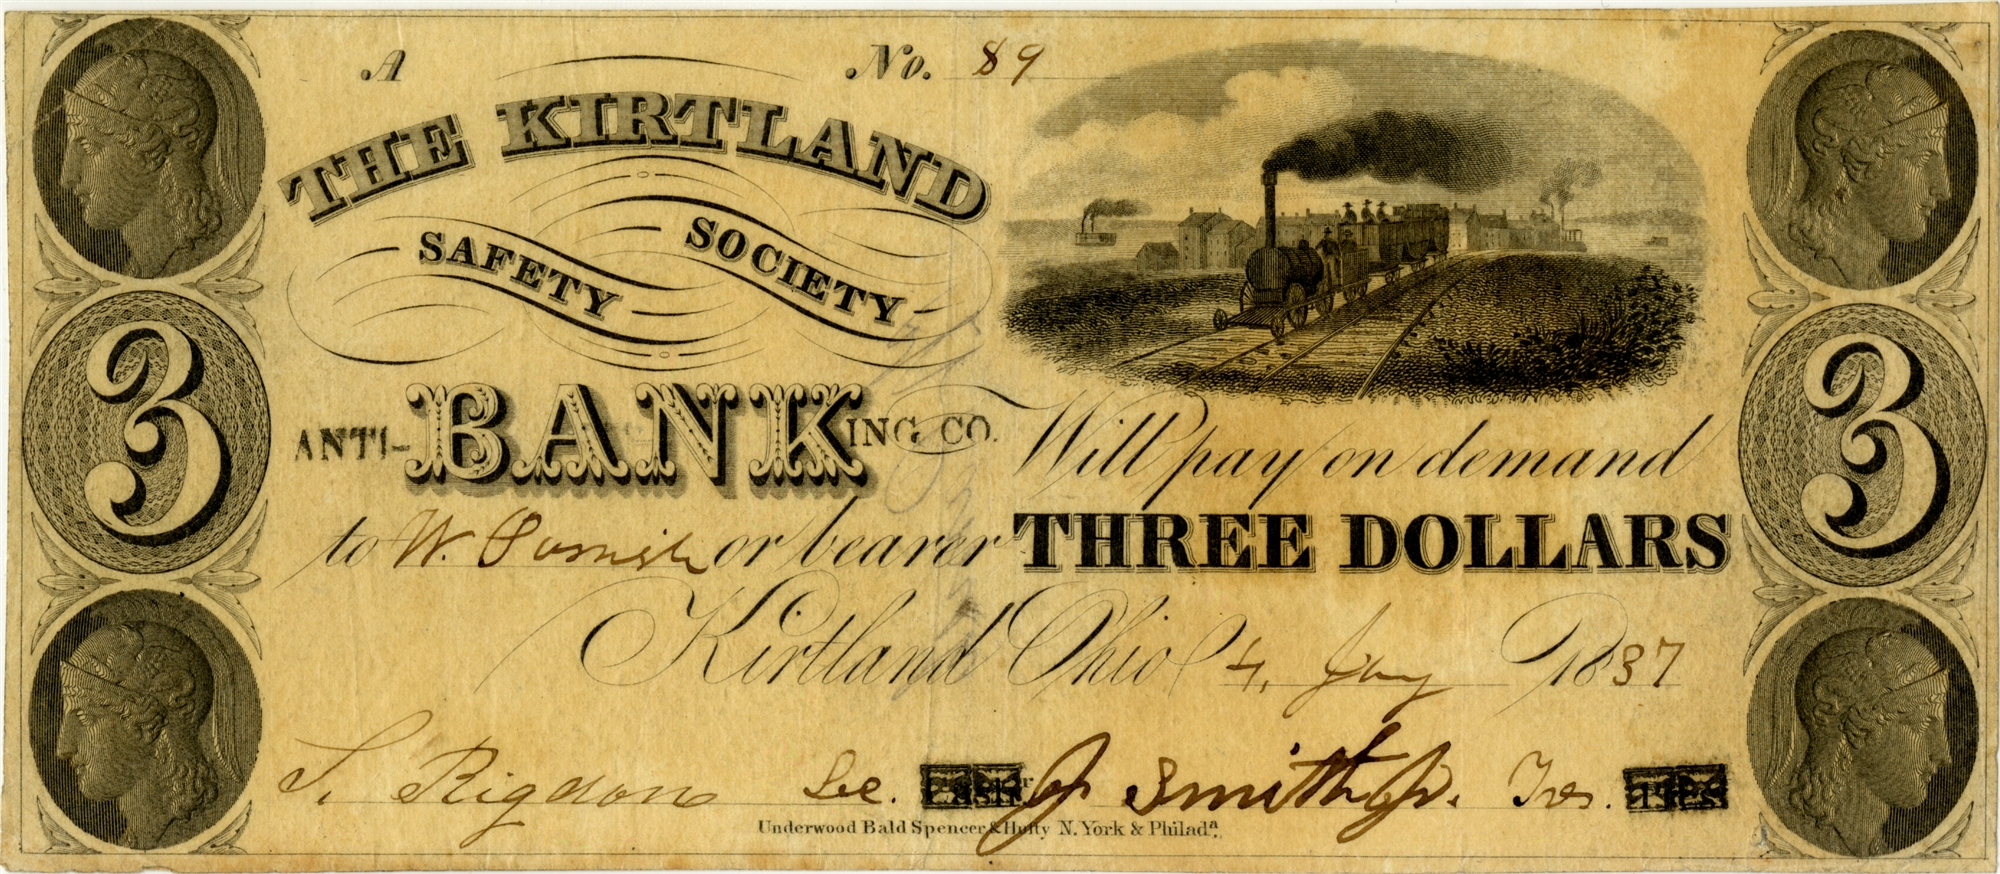 A No. 89
THE KIRTLAND
SAFETY SOCIETY
ANTI-BANKING CO. Will pay on demand
to W. Parrish or bearer THREE DOLLARS
Kirtland Ohio 4, Jany 1837
S. Rigdon Sec. J Smith Jr. Tres.
Underwood Bald Spencer & Hufty N. York & Philada.
3
3